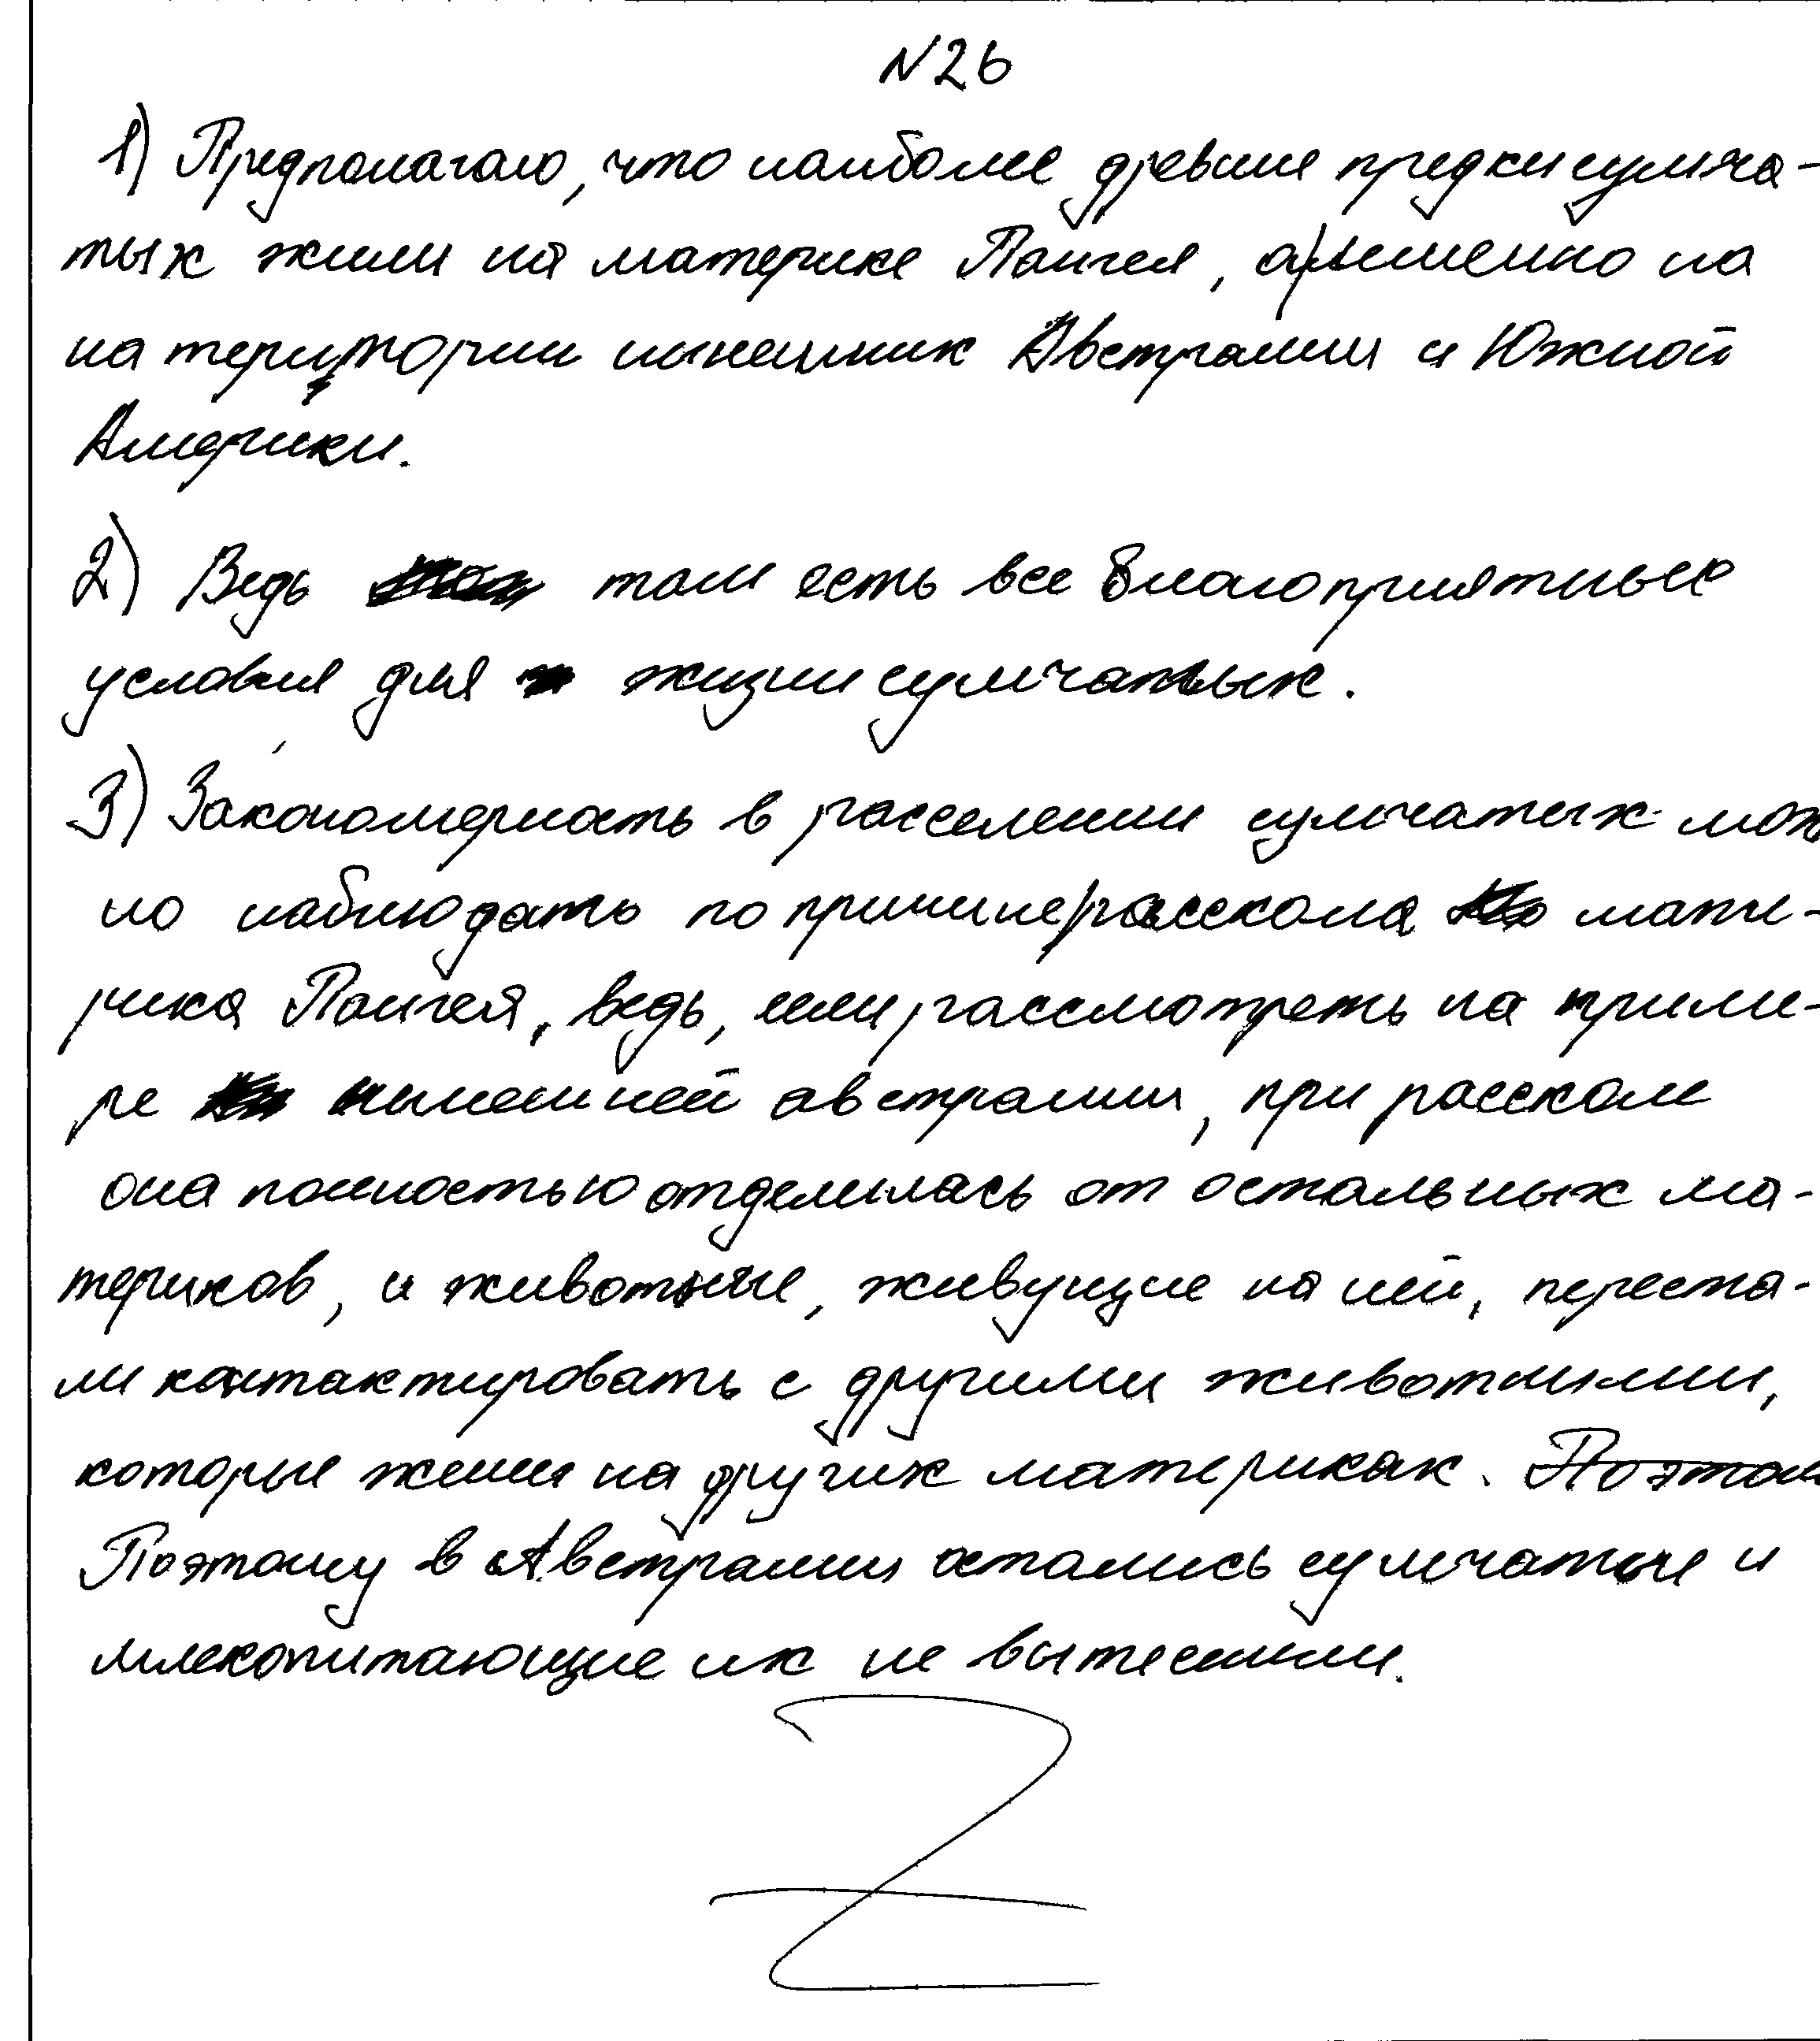 N26
1) Предполагаю, что наиболее древние предки сумча-
тых жили на материке Пангея, а именно на
на територии нынешних Австралии и Южной
Америки.
2) Ведь там есть все благоприятные
условия для жизни сумчатых.
3) Закономерность в расселении сумчатых мож
но наблюдать по причине раскола мате-
рика Пангея, ведь, если рассмотреть на приме-
ре нынешней австралии, при расколе
она полностью отделилась от остальных ма-
териков, и животные, живущие на ней, переста-
ли контактировать с другими животными,
которые жили на других материках. Поэтом
Поэтому в Австралии остались сумчатые и
млекопитающие их не вытеснили.